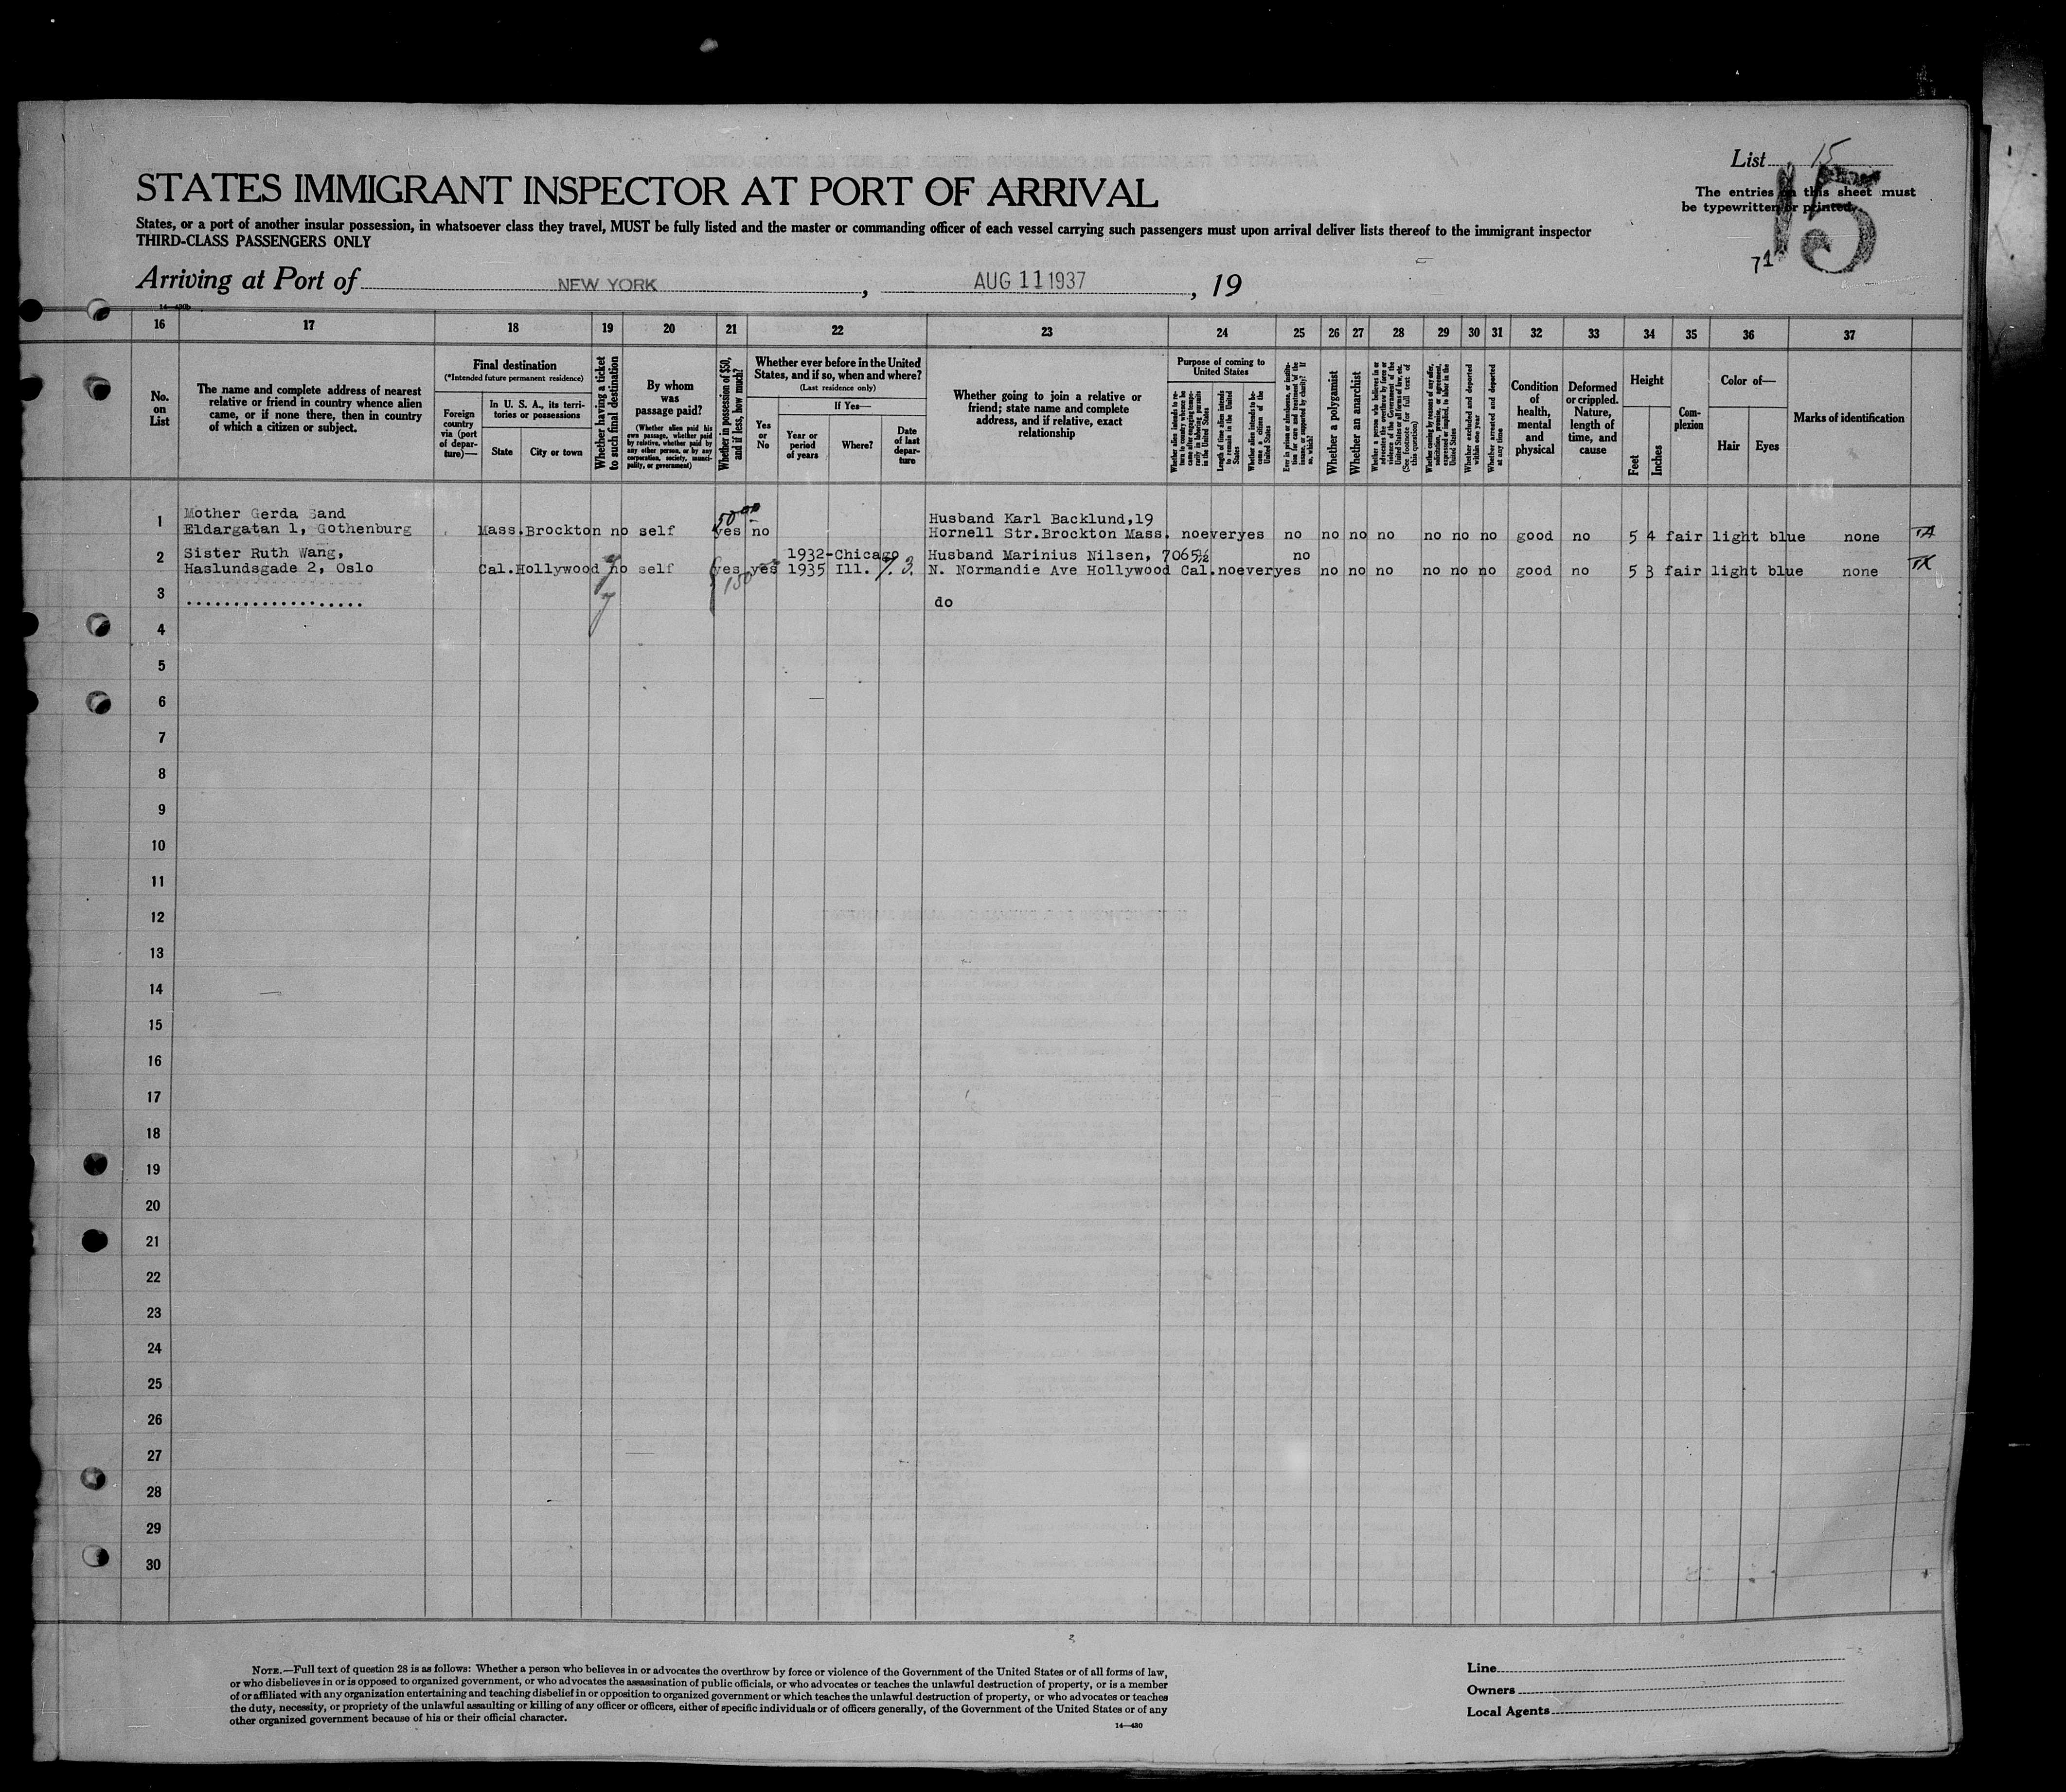 List 15
STATES IMMIGRANT INSPECTOR AT PORT OF ARRIVAL
The entries on this sheet must
be typewritten or printed.
15
71
States, or a port of another insular possession, in whatsoever class they travel, MUST be fully listed and the master or commanding officer of each vessel carrying such passengers must upon arrival deliver lists thereof to the immigrant inspector
THIRD-CLASS PASSENGERS ONLY
Arriving at Port of NEW YORK, AUG 11 1937, 19
14—430b
16 17 18 19 20 21 22 23 24 25 26 27 28 29 30 31 32 33 34 35 36 37
No. on List
The name and complete address of nearest relative or friend in country whence alien came, or if none there, then in country of which a citizen or subject.
Final destination
(*Intended future permanent residence)
Foreign country via (port of departure)—
In U. S. A., its territories or possessions
State
City or town
Whether having a ticket to such final destination
By whom was passage paid?
(Whether alien paid his own passage, whether paid by relative, whether paid by any other person, or by any corporation, society, municipality, or government)
Whether in possession of $50, and if less, how much?
Whether ever before in the United States, and if so, when and where?
(Last residence only)
Yes or No
If Yes—
Year or period of years
Where?
Date of last departure
Whether going to join a relative or friend; state name and complete address, and if relative, exact relationship
Purpose of coming to United States
Whether alien intends to return to country whence he came after engaging temporarily in laboring pursuits in the United States
Length of time alien intends to remain in the United States
Whether alien intends to become a citizen of the United States
Ever in prison or almshouse, or institution for care and treatment of the insane, or supported by charity? If so, which?
Whether a polygamist
Whether an anarchist
Whether a person who believes in or advocates the overthrow by force or violence of the Government of the United States or all forms of law, etc. (See footnote for full text of this question)
Whether coming by reason of any offer, solicitation, promise, or agreement, expressed or implied, to labor in the United States
Whether excluded and deported within one year
Whether arrested and deported at any time
Condition of health, mental and physical
Deformed or crippled. Nature, length of time, and cause
Height
Feet
Inches
Complexion
Color of—
Hair
Eyes
Marks of identification
1 Mother Gerda Sand 50 00 Husband Karl Backlund,19
Eldargatan 1, Gothenburg Mass.Brockton no self yes no Hornell Str.Brockton Mass. noeveryes no no no no no no no good no 5 4 fair light blue none TA
2 Sister Ruth Wang, 1932-Chicago Husband Marinius Nilsen, 7065½ no
Haslundsgade 2, Oslo Cal.Hollywood no self yes yes 1935 Ill. N. Normandie Ave Hollywood Cal.noeveryes no no no no no no good no 5 3 fair light blue none
150
3 .................... do
4
5
6
7
8
9
10
11
12
13
14
15
16
17
18
19
20
21
22
23
24
25
26
27
28
29
30
NOTE.—Full text of question 28 is as follows: Whether a person who believes in or advocates the overthrow by force or violence of the Government of the United States or of all forms of law,
or who disbelieves in or is opposed to organized government, or who advocates the assassination of public officials, or who advocates or teaches the unlawful destruction of property, or is a member
of or affiliated with any organization entertaining and teaching disbelief in or opposition to organized government or which teaches the unlawful destruction of property, or who advocates or teaches
the duty, necessity, or propriety of the unlawful assaulting or killing of any officer or officers, either of specific individuals or of officers generally, of the Government of the United States or of any
other organized government because of his or their official character.
14—430
Line
Owners
Local Agents